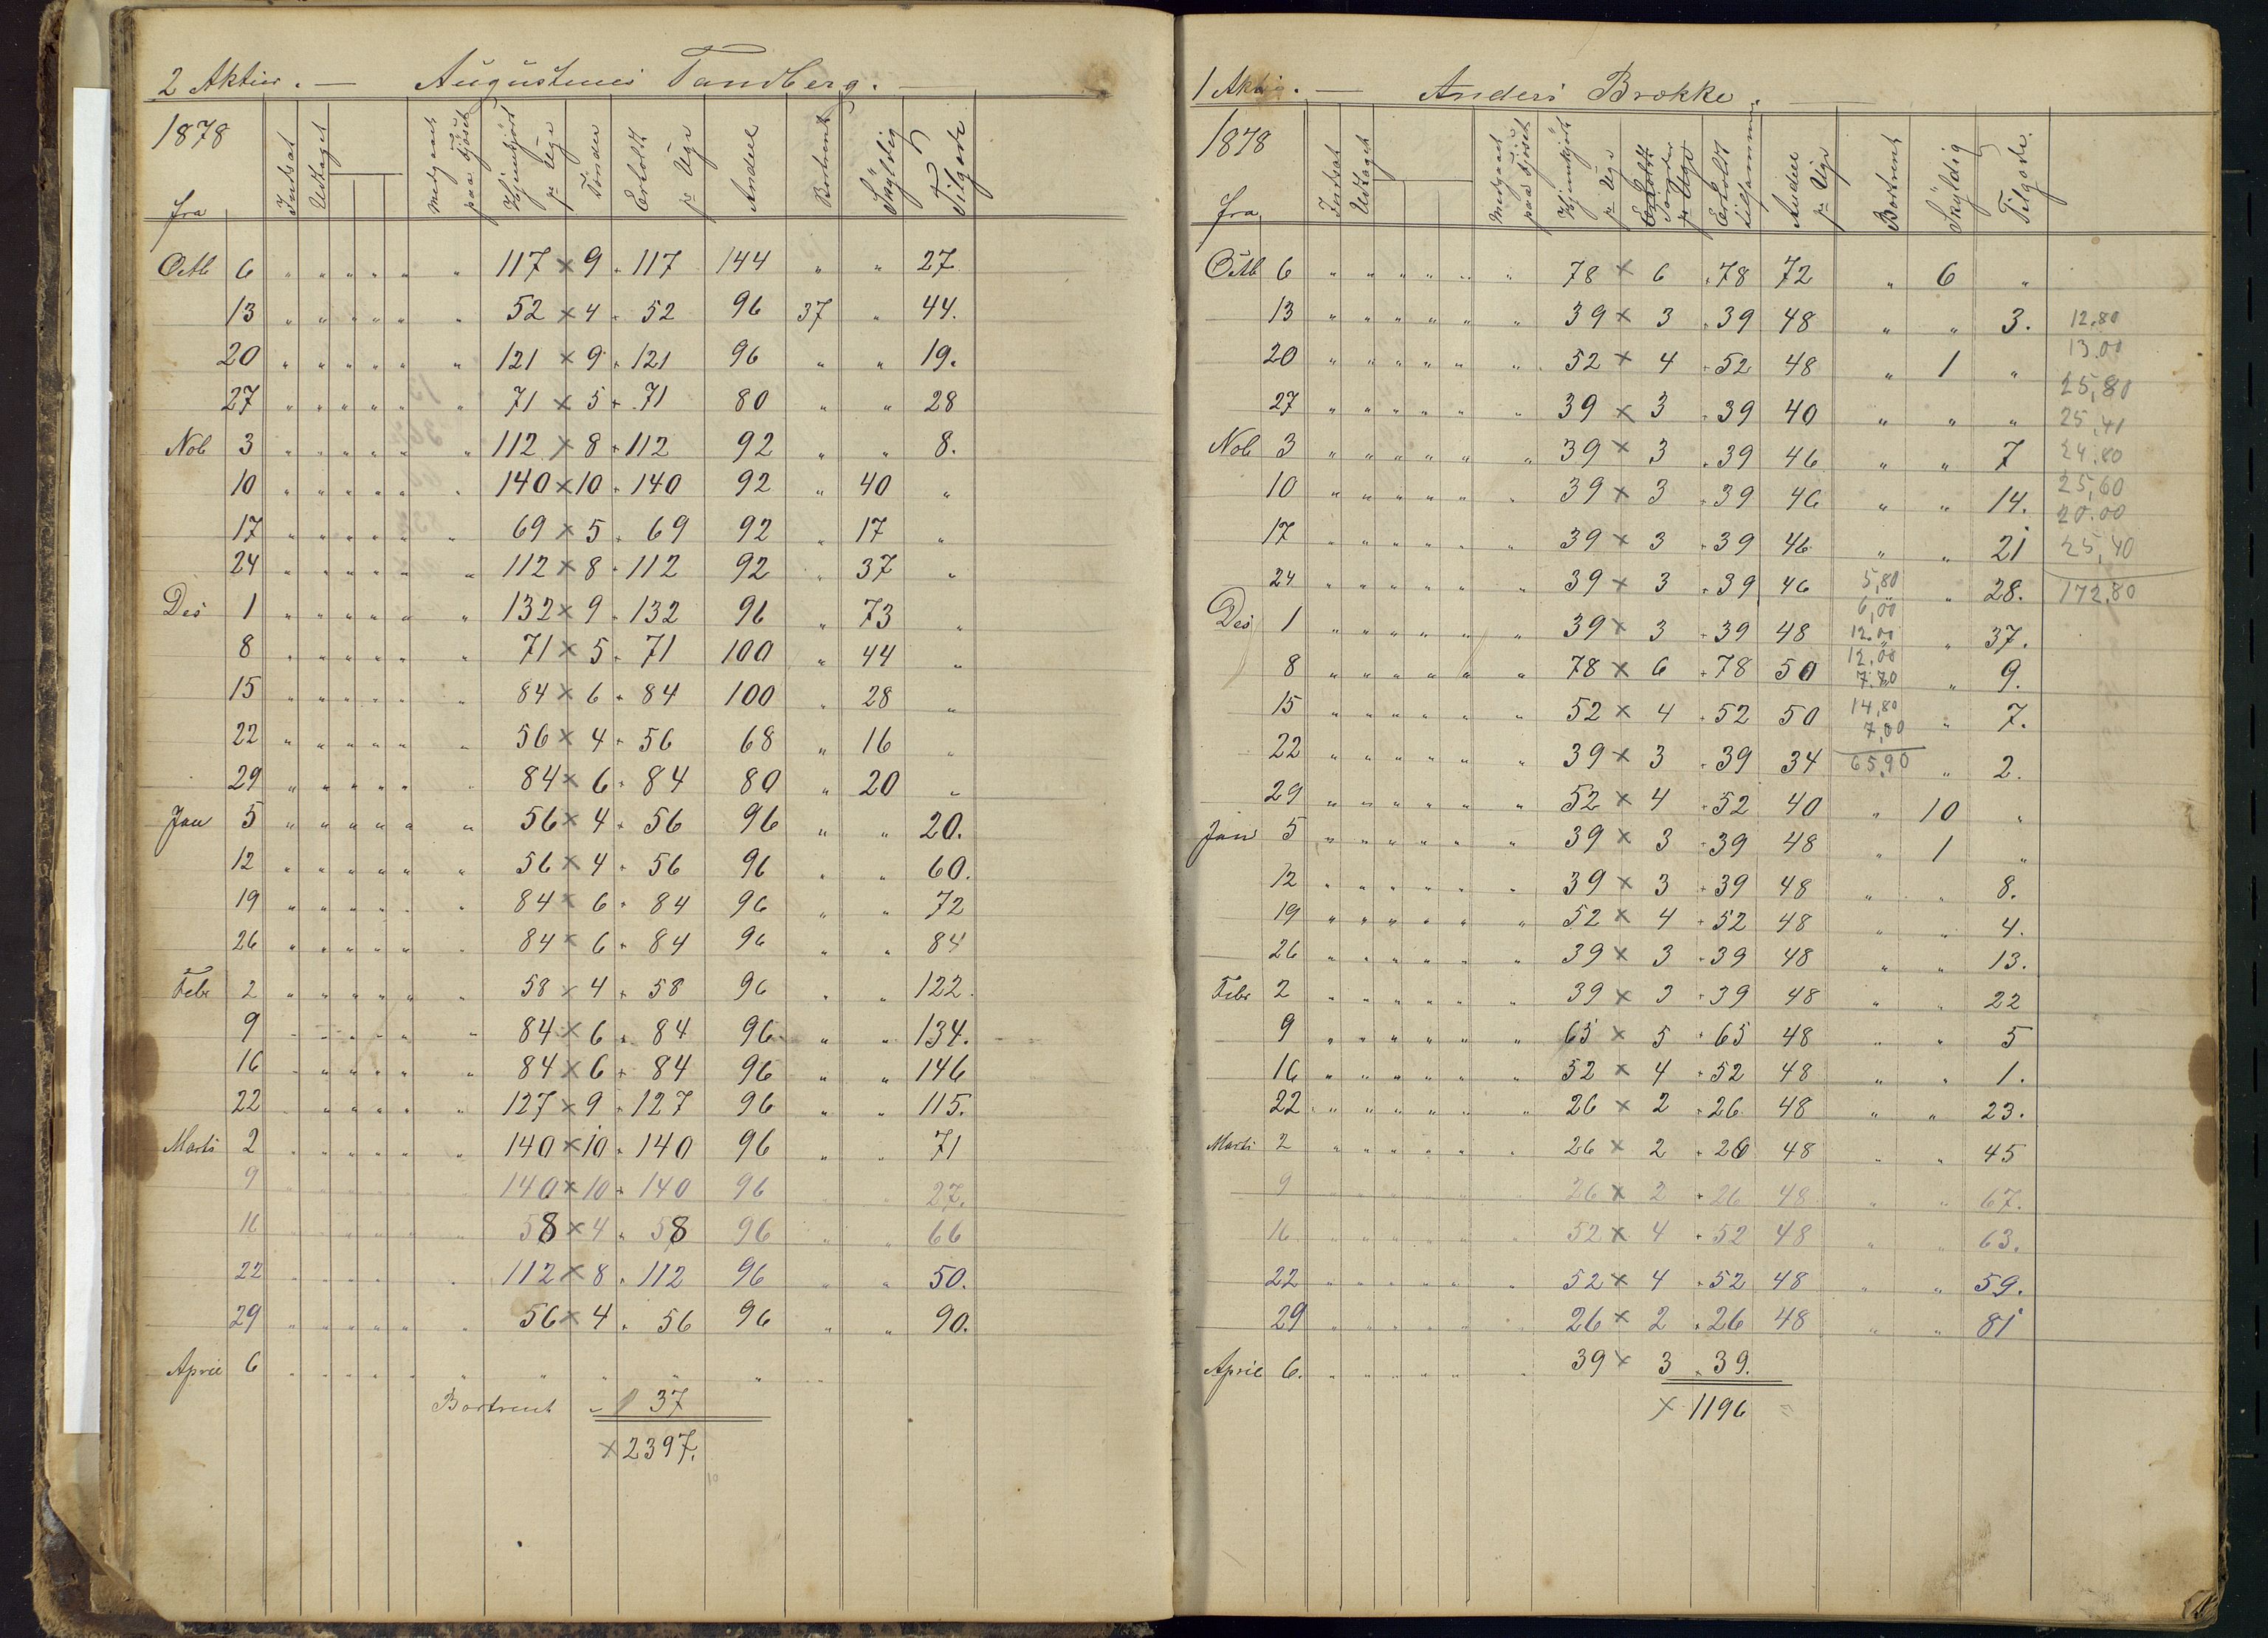 2 Aktier. — Augustinus Tandberg. —
1878
fra Indsat Udtaget Medgaaet paa Fjöset Hjemkjört pr Uge Tönder Erholdt pr Uge Andeel Bortrent Skyldig Tilgode
Octb 6 " " " " " " " 117 × 9 " 117 144 " " 27
13 " " " " " " 52 × 4 " 52 96 37 " 44.
20 " " " " " " 121 × 9 " 121 96 " " 19.
27 " " " " " " 71 × 5 " 71 80 " " 28
Nob 3 " " " " " " 112 × 8 " 112 92 " " 8.
10 " " " " " " 140 × 10 " 140 92 " 40 "
17 " " " " " " 69 × 5 " 69 92 " 17 "
24 " " " " " " 112 × 8 " 112 92 " 37 "
Des 1 " " " " " " 132 × 9 " 132 96 " 73 "
8 " " " " " " 71 × 5 " 71 100 " 44 "
15 " " " " " " 84 × 6 " 84 100 " 28 "
22 " " " " " " 56 × 4 " 56 68 " 16 "
29 " " " " " " 84 × 6 " 84 80 " 20 "
Jan 5 " " " " " " 56 × 4 " 56 96 " " 20.
12 " " " " " " 56 × 4 " 56 96 " " 60.
19 " " " " " " 84 × 6 " 84 96 " " 72
26 " " " " " " 84 × 6 " 84 96 " " 84
Febr 2 " " " " " " 58 × 4 " 58 96 " " 122.
9 " " " " " " 84 × 6 " 84 96 " " 134.
16 " " " " " " 84 × 6 " 84 96 " " 146
22 " " " " " " 127 × 9 " 127 96 " " 115.
Marts 2 " " " " " " 140 × 10 " 140 96 " " 71
9 " " " " " " 140 × 10 " 140 96 " " 27.
16 " " " " " " 58 × 4 " 58 96 " " 66
22 " " " " " " 112 × 8 " 112 96 " " 50.
29 " " " " " " 56 × 4 " 56 96 " " 90.
April 6 " " " " " " " " " "
Bortrent " 37
× 2397.
10
1 Aktie. — Anders Brokke. —
1878
fra Indsat Udtaget Medgaaet paa Fjöset Hjemkjört pr Uge Erholdt Tönder pr Uge Erholdt tilsammen Andeel pr Uge Bortrent Skyldig Tilgode.
Octb 6 " " " " " " 78 × 6 " 78 72 " 6 "
13 " " " " " " 39 × 3 " 39 48 " " 3. 12.80
13.00
20 " " " " " " 52 × 4 " 52 48 " 1 " 25,80
27 " " " " " " 39 × 3 " 39 40 " " " 25,41
Nob 3 " " " " " " 39 × 3 " 39 46 " " 7 24.80
10 " " " " " " 39 × 3 " 39 46 " " 14. 25,60
20.00
17 " " " " " " 39 × 3 " 39 46 " " 21 25,40
24 " " " " " " 39 × 3 " 39 46 5,80 " 28. 172.80
6,00
Des 1 " " " " " " 39 × 3 " 39 48 12.00 " 37.
12.00
8 " " " " " " 78 × 6 " 78 50 7.70 " 9.
15 " " " " " " 52 × 4 " 52 50 14,80 " 7.
7,00
22 " " " " " " 39 × 3 " 39 34 65,90 " 2.
29 " " " " " " 52 × 4 " 52 40 " 10 "
Jan 5 " " " " " " 39 × 3 " 39 48 " 1 "
12 " " " " " " 39 × 3 " 39 48 " " 8.
19 " " " " " " 52 × 4 " 52 48 " " 4.
26 " " " " " " 39 × 3 " 39 48 " " 13.
Febr 2 " " " " " " 39 × 3 " 39 48 " " 22
9 " " " " " " 65 × 5 " 65 48 " " 5
16 " " " " " " 52 × 4 " 52 48 " " 1.
22 " " " " " " 26 × 2 " 26 48 " " 23.
Marts 2 " " " " " " 26 × 2 " 26 48 " " 45
9 " " " " " " 26 × 2 " 26 48 " " 67.
16 " " " " " " 52 × 4 " 52 48 " " 63.
22 " " " " " " 52 × 4 " 52 48 " " 59.
29 " " " " " " 26 × 2 " 26 48 " " 81
April 6. " " " " " " 39 × 3 " 39.
× 1196